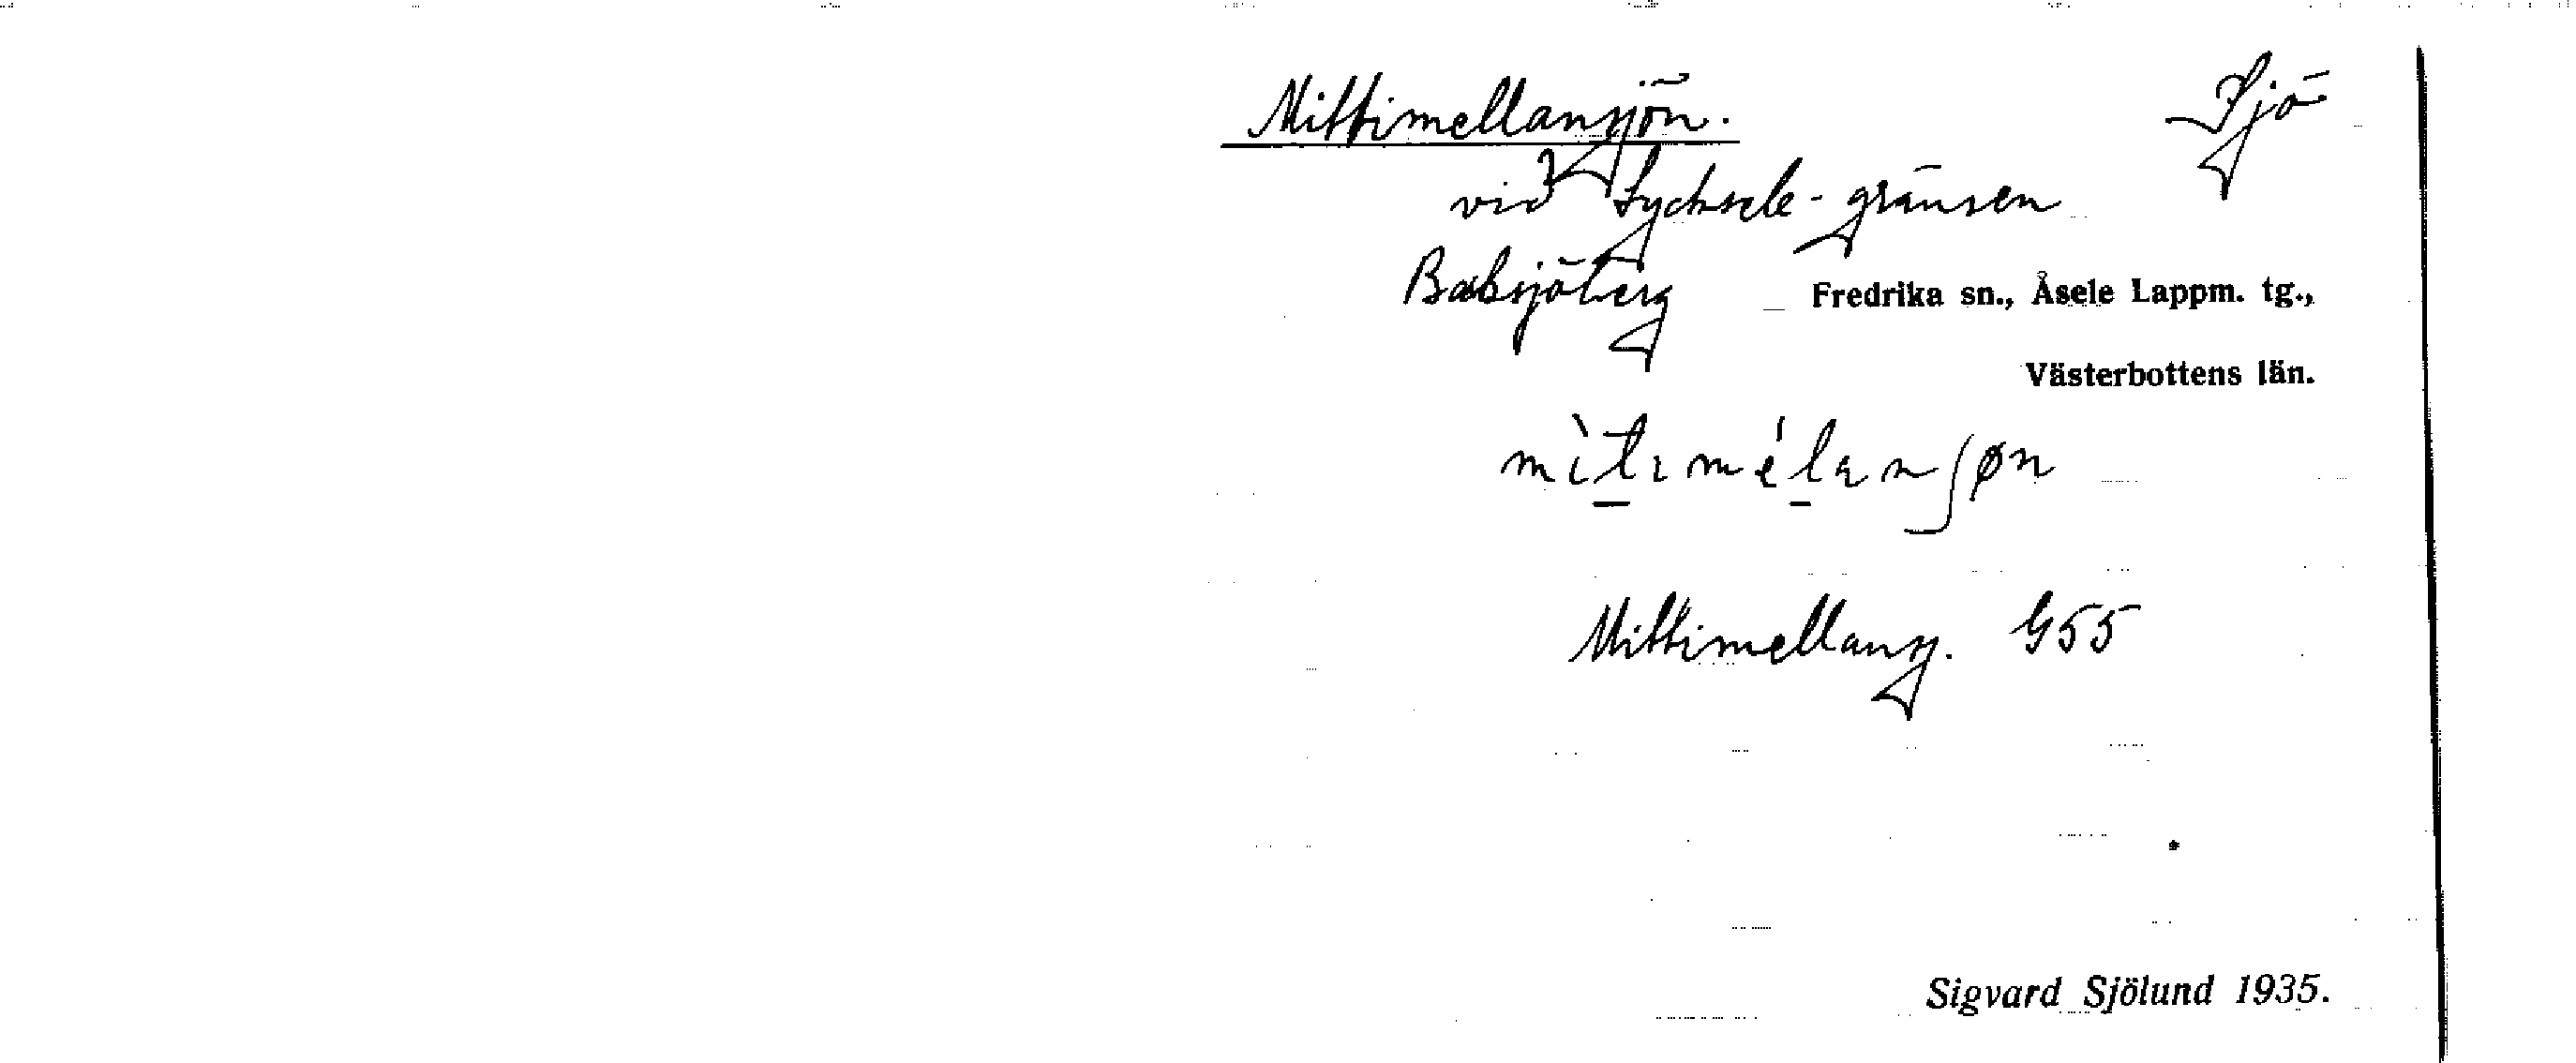 Mittimellansjön. Sjö
vid Lycksele-gränsen
Babsjöberg Fredrika sn., Åsele Lappm. tg.,
Västerbottens län.
mìtɩmélanʃøn
Mittimellansj. G55
Sigvard Sjölund 1935.